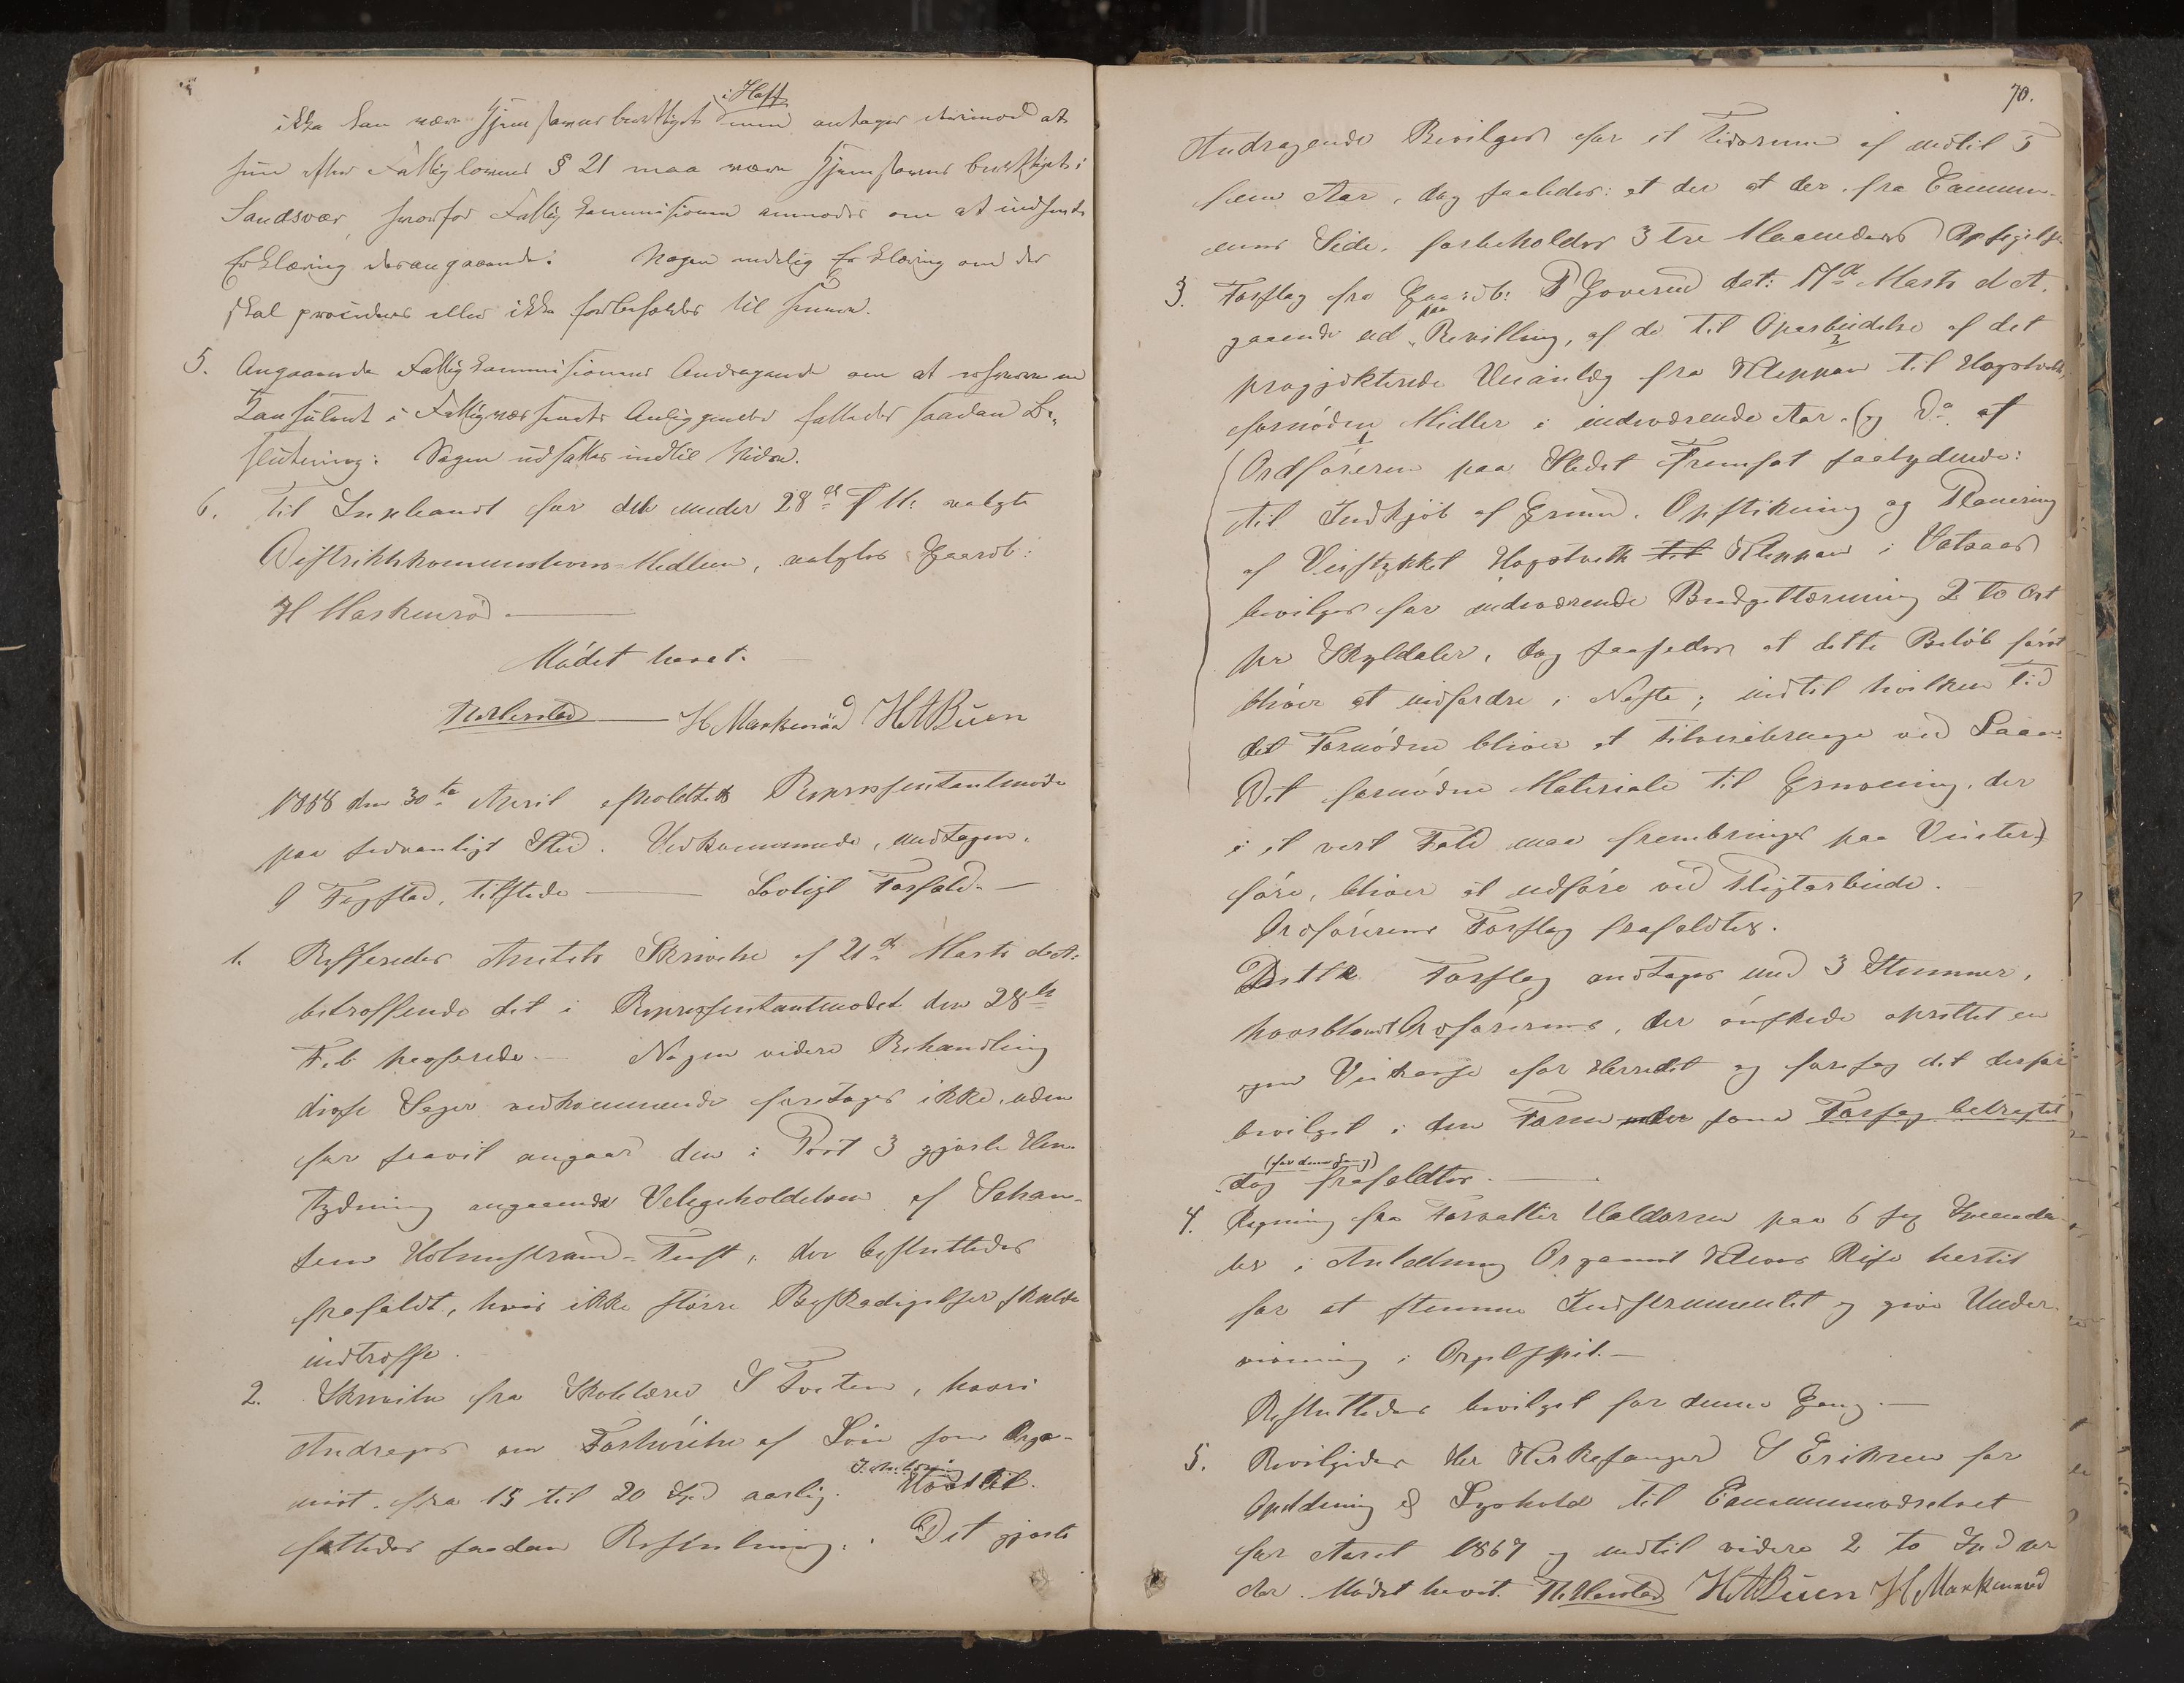 i Hoff
ikke kan være hjemstavnsberettiget men antager derimod at
hun efter Fattiglovens § 21 maa være hjemstavnsberettiget i
Sandsvær, hvorfor Fattigkommissionen anmodes om at indhente
Erklæring derangaaende: Nogen endelig Erklæring om der
skal procederes eller ikke forbeholdes til senere.
5. Angaaende Fattigkommissionens Andragende om at erhverve en
Konsulent i Fattigvæsenets Anliggender fattedes saadan Be„
slutning: Sagen udsættes indtil Videre.
6. Til Suppleant for det under 28de f M: valgte
Distriktskommissions-Medlem, valgtes Gaardb:
H Maskenrød.
Mødet hævet.
H Markenrød HABuen
1868 den 30te April afholdtes Repræsentantmøde
paa sedvanligt Sted. Vedkommende, undtagen
Fogstad, tilstede Lovligt Forfald.
1. Refferedes Amtets Skrivelse af 21de Marts d.A.
betreffende det i Repræsentantmødet den 28de
Feb passerede. Nogen videre Behandling
disse Sager vedkommende foretages ikke, uden
for saavit angaar den i Post 3 gjorte Hen-
tydning angaaende Veligeholdelsen af Schau-
seen Holmestrand-Tuft, der besluttedes
frafaldt, hvis ikke større Beskadigelser skulde
indtræffe.
2. Skrivelse fra Skolelærer S Tveten, hvori
Andrages om Forhøielse af Løn som Orga-
nist, fra 15 til 20 Spd aarlig.
fattedes saadan Beslutning: Det gjorte
70.
Andragende Bevilges for et Tidsrum af indtil 5
fem Aar, dog saaledes: at der at der fra Commu-
nens Side, forbeholdes 3 tre Maaneders Opsigelse
3. Forslag fra Gaardb: P Goverud dat: 17de Marts d.A.
gaaende ud paa Bevilling, af de til Oparbeidelse af det
progjekterede Veianlæg fra Kleppan til Hopstvedt,
fornødne Midler i indeværende Aar. (og Do af
Ordføreren paa Stedet Fremsat saalydende:
til Indkjøb af Grund, Opstikning og Planering
af Veistykket Hopstveth til Kleppan i Vatsaas
bevilges for indeværende Budgettermin 2 to Ort
pr Skyldaler, dog saaledes at dette Beløb først
bliver at indfordre i Neste; indtil hvilken Tid
det Fornødne bliver at tilveiebringe ved Laan.
Det fornødne Materiale til Grusning, der
i et vert Fald maa frembringes paa Vinter-
føre, bliver at udføre ved Pligtarbeide.
Ordførerens Forslag frafaldtes.
Dette Forslag antages med 3 Stemmer,
hvoriblandt Ordførerens, der ønskede oprettet en
egen Veikasse for Herredet og
bevilget i den Form som Forslag betragtet
(for denne Gang)
dog frafaldtes.
4. Regning fra Forvalter Haldorsen paa 6 sex Speciedal
ler i Anledning Organist Reise hertil
for at stemme Indstrumentet og give Under-
visning i Orgelspil.
Besluttedes bevilget for denne Gang.
5. Bevilgedes Hr Kirkesanger S Eriksen for
Opvarming & Lyshold til Communeværelset
for Aaret 1867 og indtil videre 2 to Spd pr
Aar. Mødet hævet. HABuen H Markenrød